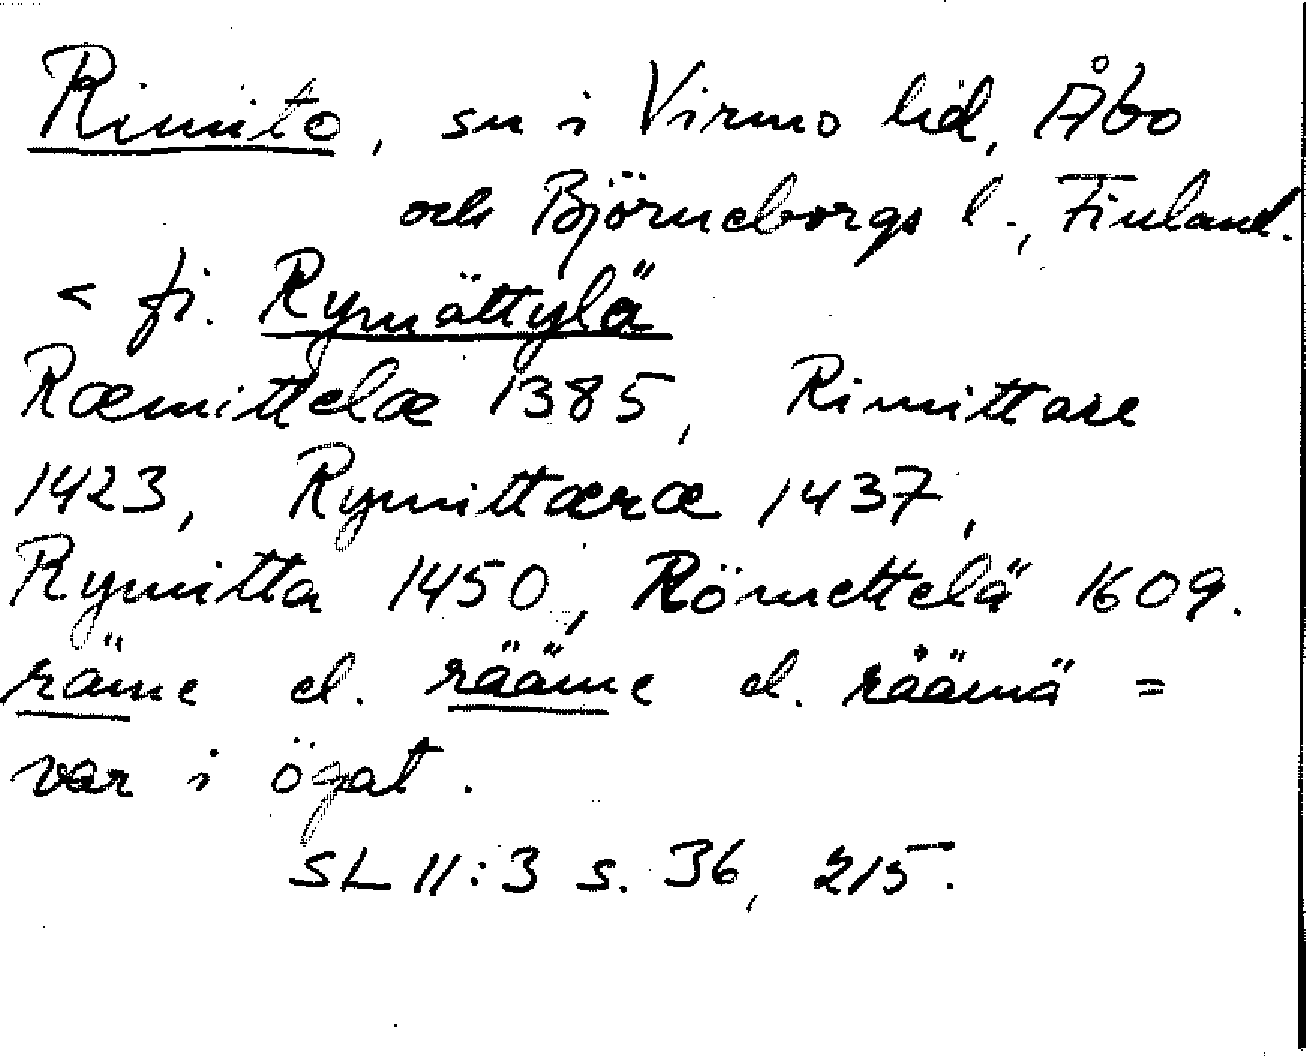 Rimito, sn i Virmo hd, Åbo
och Björneborgs l., Finland.
< fi. Rymättylä
Ræmittelæ 1385, Rimittare
1423, Rymittæræ 1437,
Rymitta 1450, Römettelä 1609.
räme el. rääme el. räämä =
var i ögat.
SL II:3 s. 36, 215.